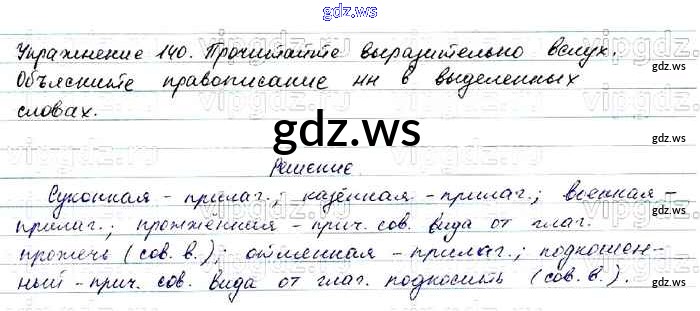 gdz.ws
Упражнение 140. Прочитайте выразительно вслух.
Объясните правописание нн в выделенных
словах.
gdz.ws
gdz.ws
Решение.
Суконная - прилаг.; казённая - прилаг.; военная -
прилаг.; прожжённая - прич. сов. вида от глаг.
прожечь (сов. в.); отменная - прилаг.; подкошен-
ный - прич. сов. вида от глаг. подкосить (сов. в.).
gdz.ws
gdz.ws
gdz.ws